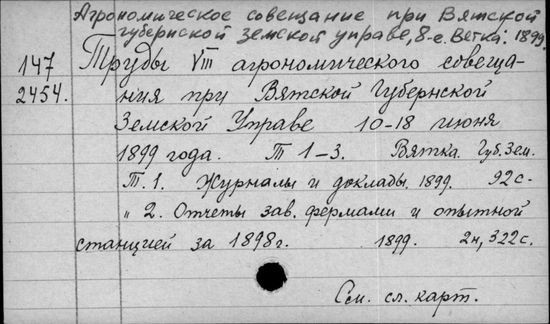 Агрономическое совещание при Вятской
губернской земской управе, 8-е. Вятка. 1899.
147
2454.
Труды VIII агрономического совеща-
ния при Вятской Губернской
Земской Управе 10-18 июня
1899 года. Т 1-3. Вятка. Губ. Зем.
Т. 1. Журналы и доклады. 1899. 92 с.
" 2. Отчеты зав. фермами и опытной
станцией за 1898 г. 1899. 2н, 322 с.
См. сл. карт.